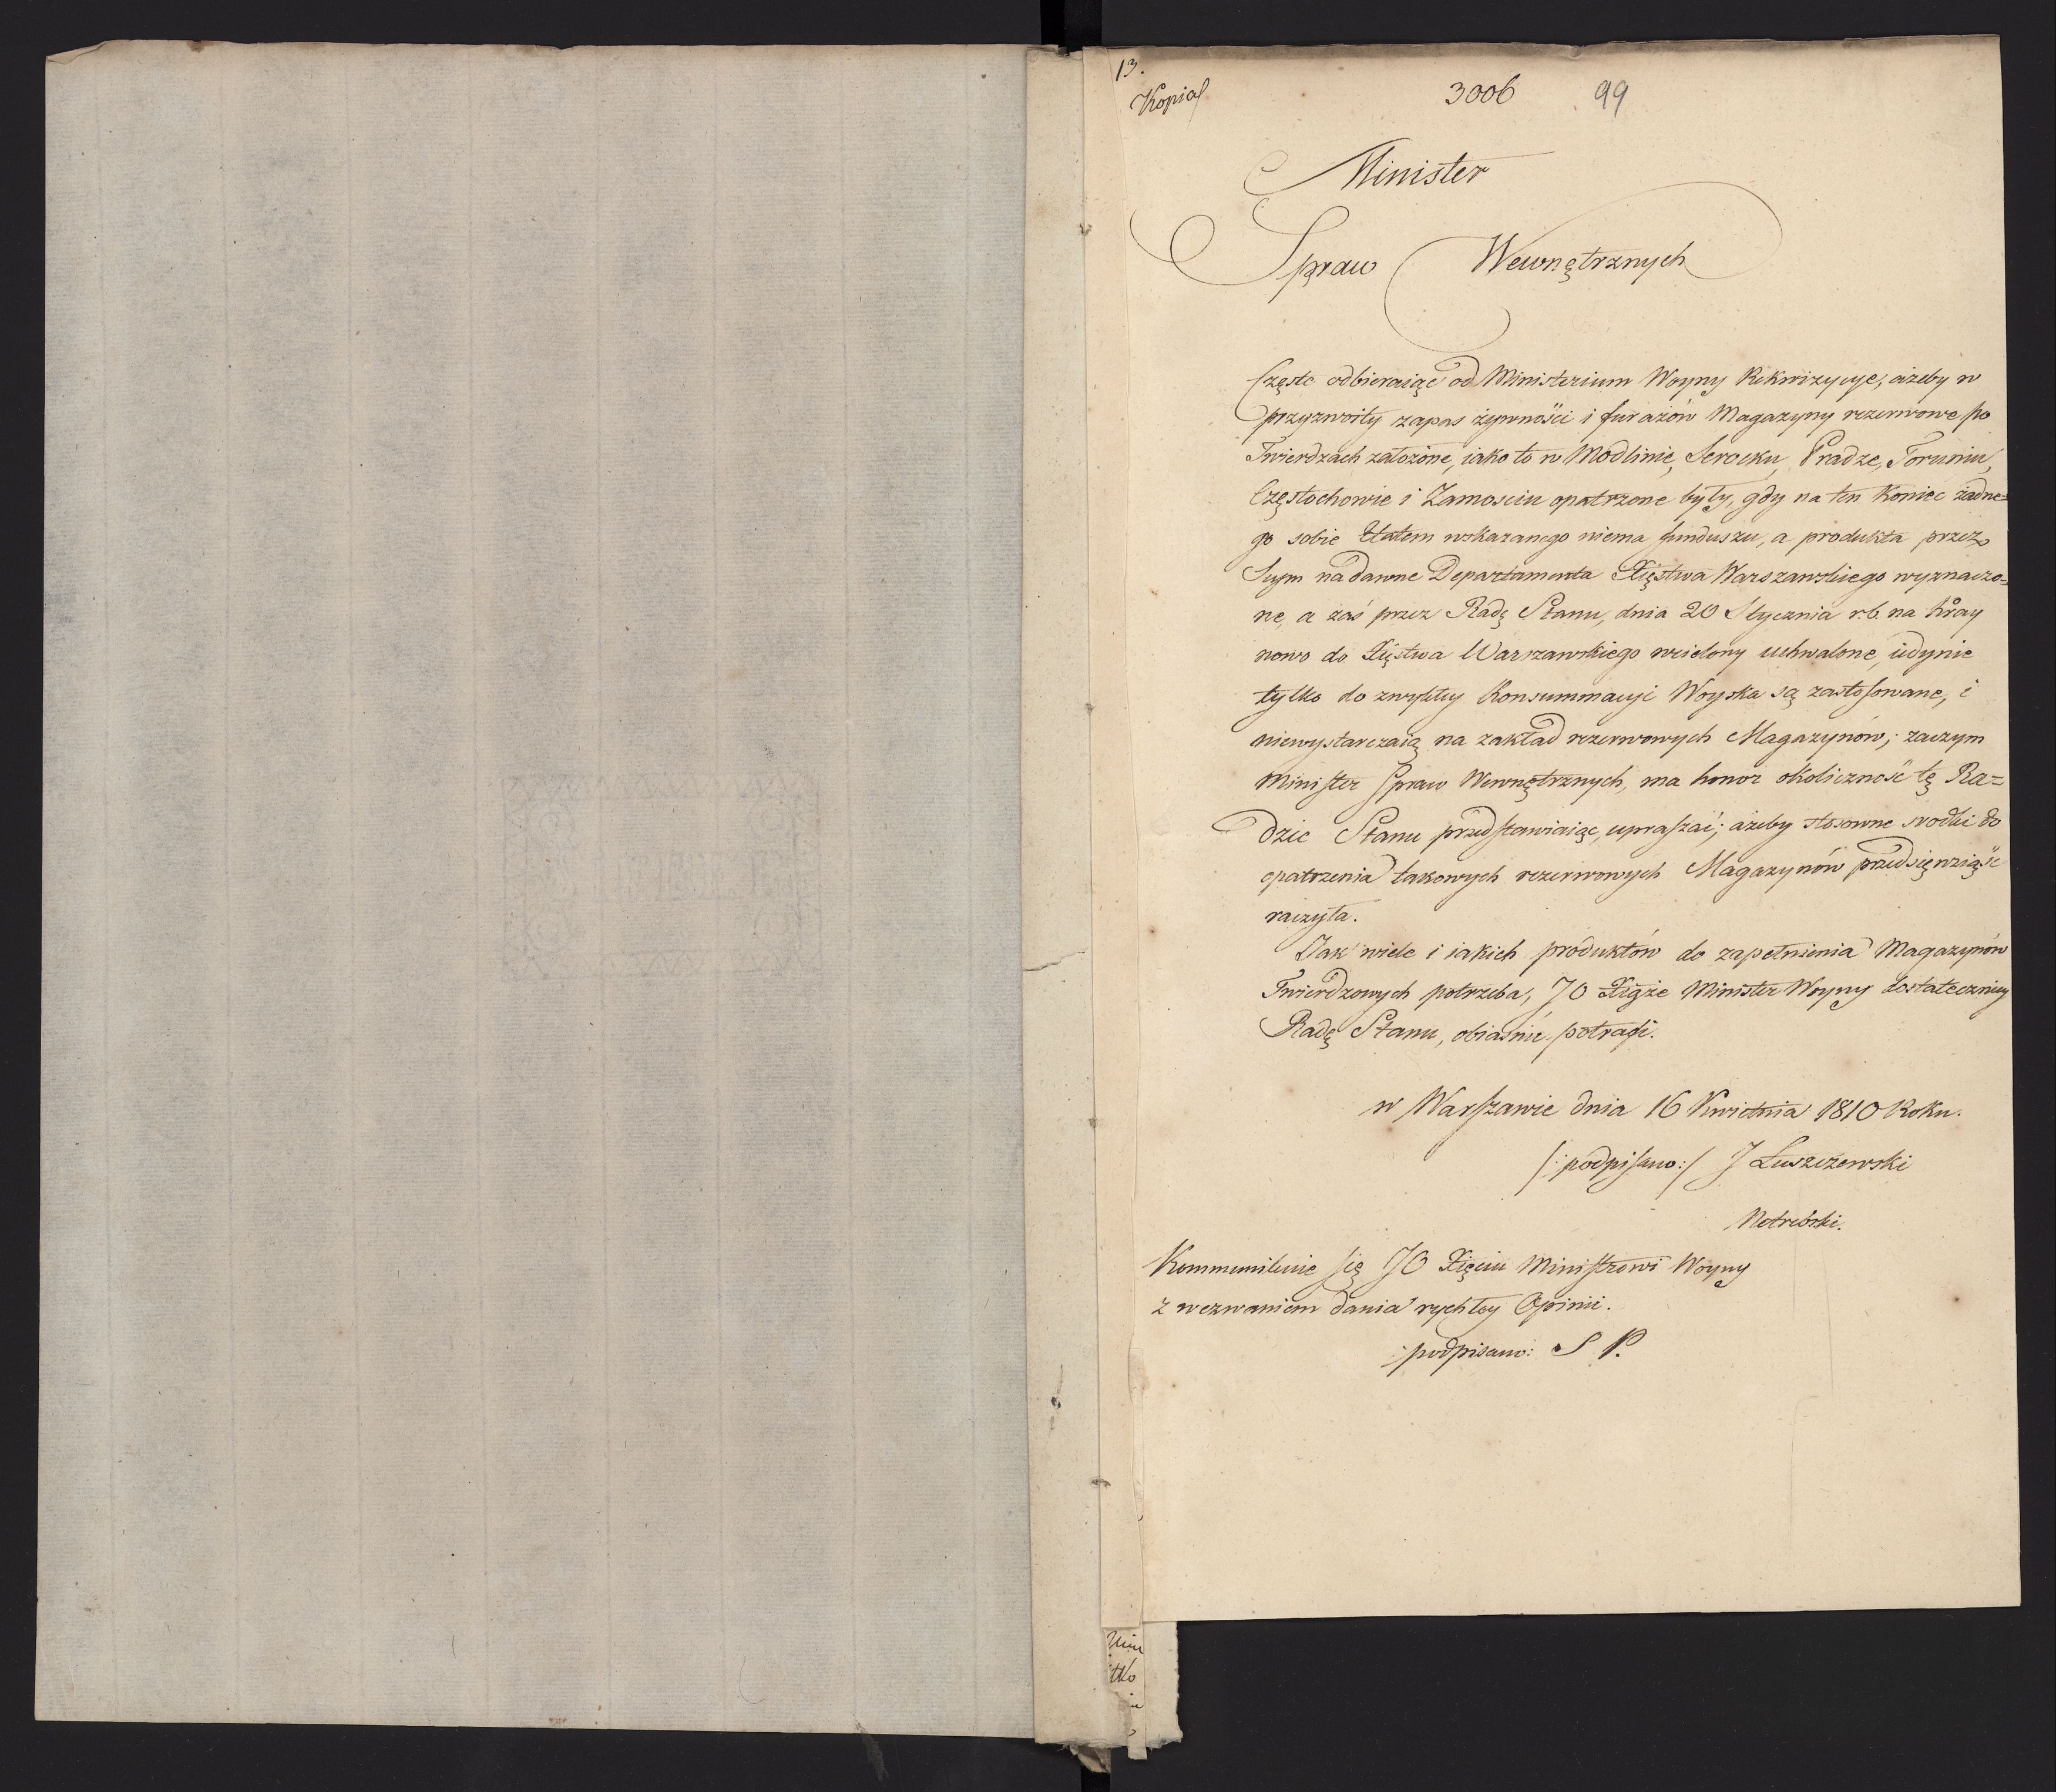 13.
Kopia
3006 99
Minister
Spraw Wewnętrznych
Częste odbieraiąc od Ministerium Woyny Rekwizycye, ażeby w
przyzwoity zapas żywności i furażów Magazyny rezerwowe po
Twierdzach założone, iako to w Modlinie, Serocku, Pradze, Toruniu,
Częstochowie i Zamosciu opatrzone były, gdy na ten Koniec żadne=
go sobie Etatem wskazanego niema funduszu, a produkta przez
Seym na dawne Departamenta Xięstwa Warszawskiego wyznaczo=
ne, a zaś przez Radę Stanu, dnia 20 Stycznia r.b. na kray
nowo do Xięstwa Warszawskiego wcielony uchwalone, iedynie
tylko do zwykłey Konsummacyi Woyska są zastosowane, i
niewystarczaią na zakład rezerwowych Magazynów; zaczym
Minister Spraw Wewnętrznych, ma honor okoliczność tę Ra=
dzie Stanu przedstawiaiąc, upraszać; ażeby stosowne srodki do
opatrzenia takowych rezerwowych Magazynów przedsięwziąść
raczyła.
Jak wiele i iakich produktów do zapełnienia Magazynów
Twierdzowych potrzeba, JO Xiąże Minister Woyny dostateczniey
Radę Stanu, obiasnić potrafi.
w Warszawie dnia 16 Kwietnia 1810 Roku.
/: podpisano :/ J Łuszczewski
Notrebski.
Kommunikuie się JO Xięciu Ministrowi Woyny
z wezwaniem dania rychłey Opinii.
podpisano: S P.
tko